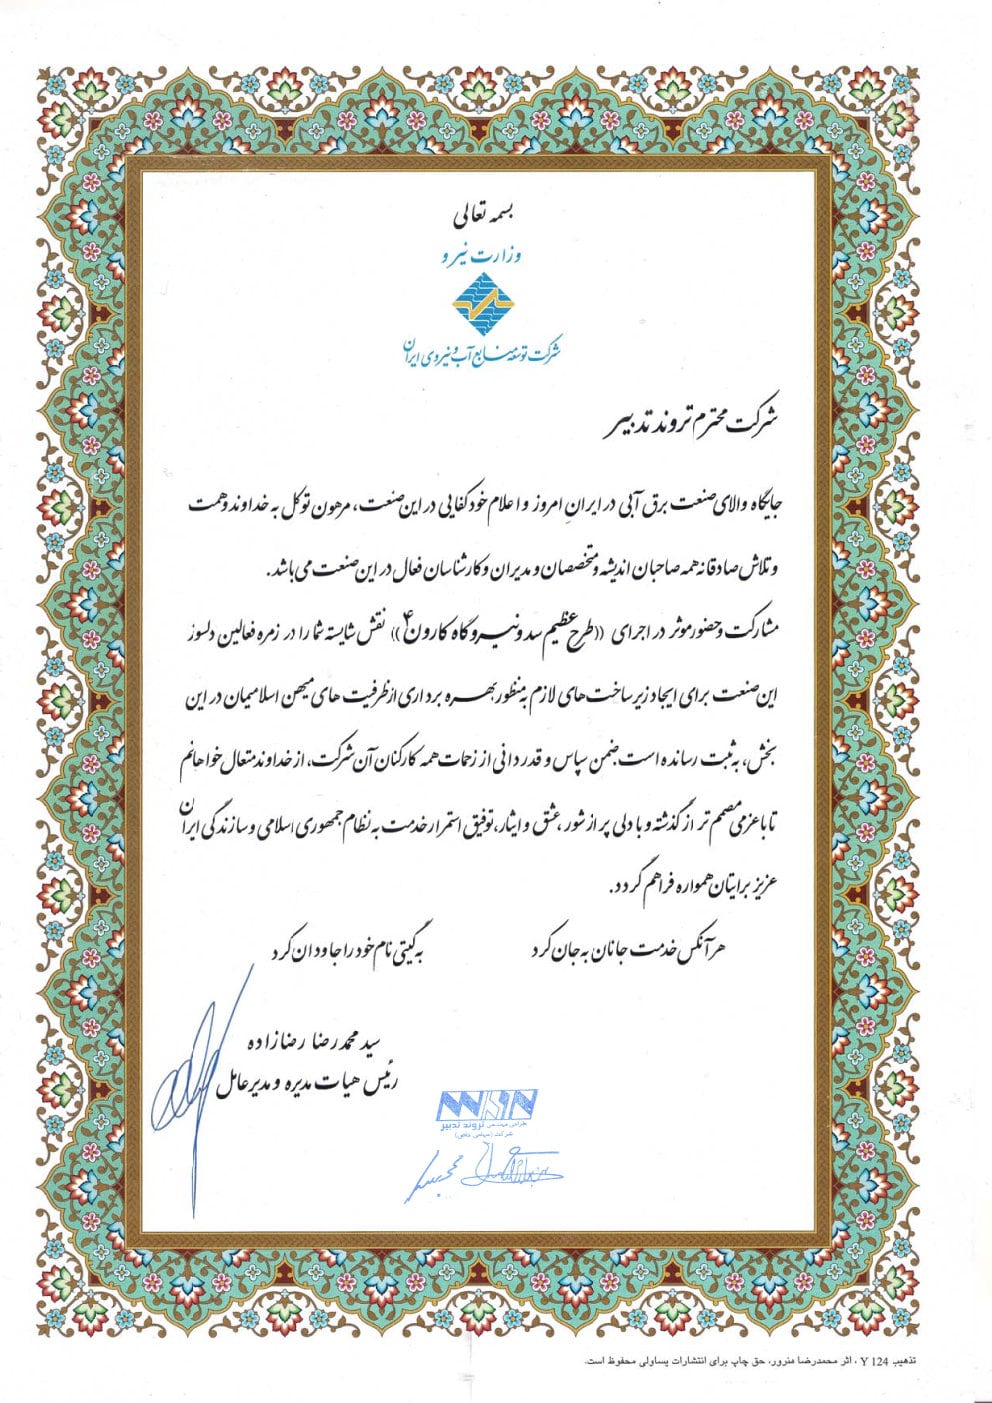 بسمه تعالی
وزارت نیرو
شرکت توسعه منابع آب و نیروی ایران
شرکت محترم تروند تدبیر
جایگاه والای صنعت برق آبی در ایرانِ امروز و اعلام خودکفایی در این صنعت، مرهون توکل به خداوند و همت
و تلاش صادقانه همه صاحبان اندیشه و متخصصان و مدیران و کارشناسان فعال در این صنعت می باشد.
مشارکت و حضور موثر در اجرای ((طرح عظیم سد و نیروگاه کارون ۴)) نقش شایسته شما را در زمره فعالین دلسوز
این صنعت برای ایجاد زیرساخت های لازم به منظور بهره برداری از ظرفیت های میهن اسلامیمان در این
بخش، به ثبت رسانده است. ضمن سپاس و قدردانی از زحمات همه کارکنان آن شرکت، از خداوند متعال خواهانم
تا با عزمی مصمم تر از گذشته و با دلی پر از شور، عشق و ایثار، توفیق استمرار خدمت به نظام جمهوری اسلامی و سازندگی ایران
عزیز برایتان همواره فراهم گردد.
هر آنکس خدمت جانان به جان کرد به گیتی نام خود را جاودان کرد
سید محمدرضا رضازاده
رئیس هیات مدیره و مدیرعامل
طراحی مهندسی تروند تدبیر
شرکت (سهامی خاص)
تذهیب Y 124 ، اثر محمدرضا هنرور، حق چاپ برای انتشارات یساولی محفوظ است.